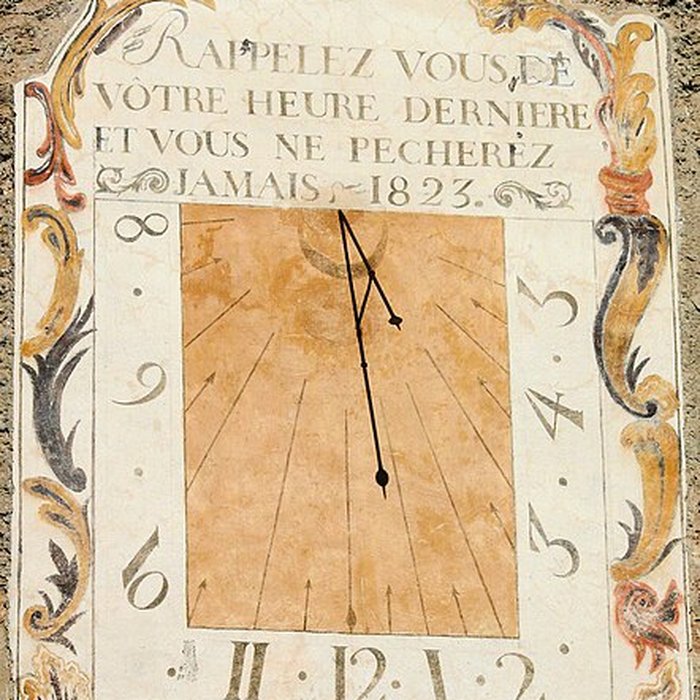 RAPPELEZ VOUS, DE
VÔTRE HEURE DERNIERE
ET VOUS NE PECHERÉZ
JAMAIS, 1823.
8 3
9 4
10 3
11 12 1 2